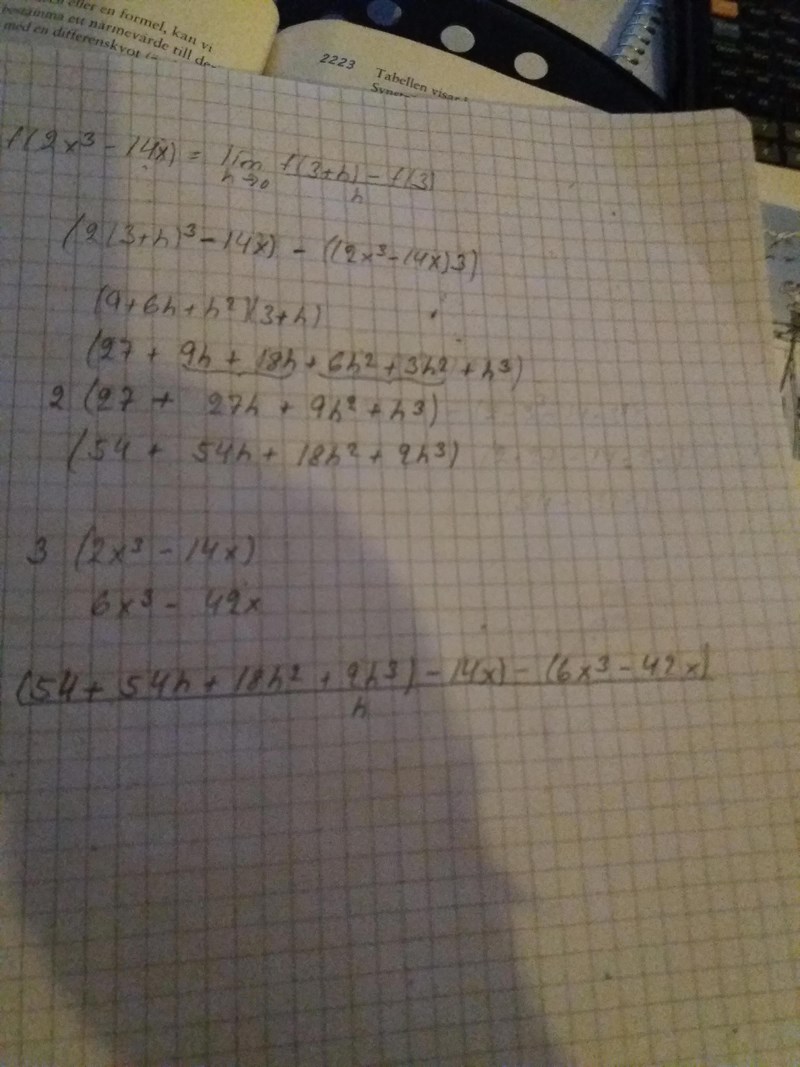 eller en formel, kan vi
bestämma ett närmevärde till de
med en differenskvot
2223
Tabellen visar
f(2x³ - 14x) = lim h→0 f(3+h) - f(3) / h
(2(3+h)³ - 14x) - ((2x³ - 14x)3)
(9 + 6h + h²)(3+h)
(27 + 9h + 18h + 6h² + 3h² + h³)
2 (27 + 27h + 9h² + h³)
(54 + 54h + 18h² + 2h³)
3 (2x³ - 14x)
6x³ - 42x
(54 + 54h + 18h² + 2h³) - 14x) - (6x³ - 42x) / h